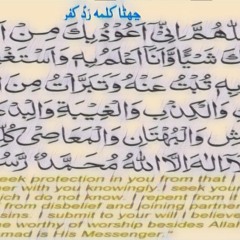 چھٹا کلمہ ردّ کفر
للّٰهُمَّ اِنِّیْ اَعُوْذُ بِكَ مِنْ
شَیْأً وَّاَنَا اَعْلَمُ بِهٖ وَاَسْتَغْفِ
بِهٖ تُبْتُ عَنْهُ وَتَبَرَّأْتُ مِنَ
وَالْكِذْبِ وَالْغِیْبَةِ وَالْبِدْعَ
شِ وَالْبُهْتَانِ وَالْمَعَاصِیْ كُلِّ
اِلٰهَ اِلَّا اللّٰهُ مُحَمَّدٌ رَّسُ
seek protection in you from that I
er with you knowingly. I seek your
ch I do not know. I repent from it
from disbelief and joining partner
sins. I submit to your will I believe
ne worthy of worship besides Allah
mad is His Messenger."